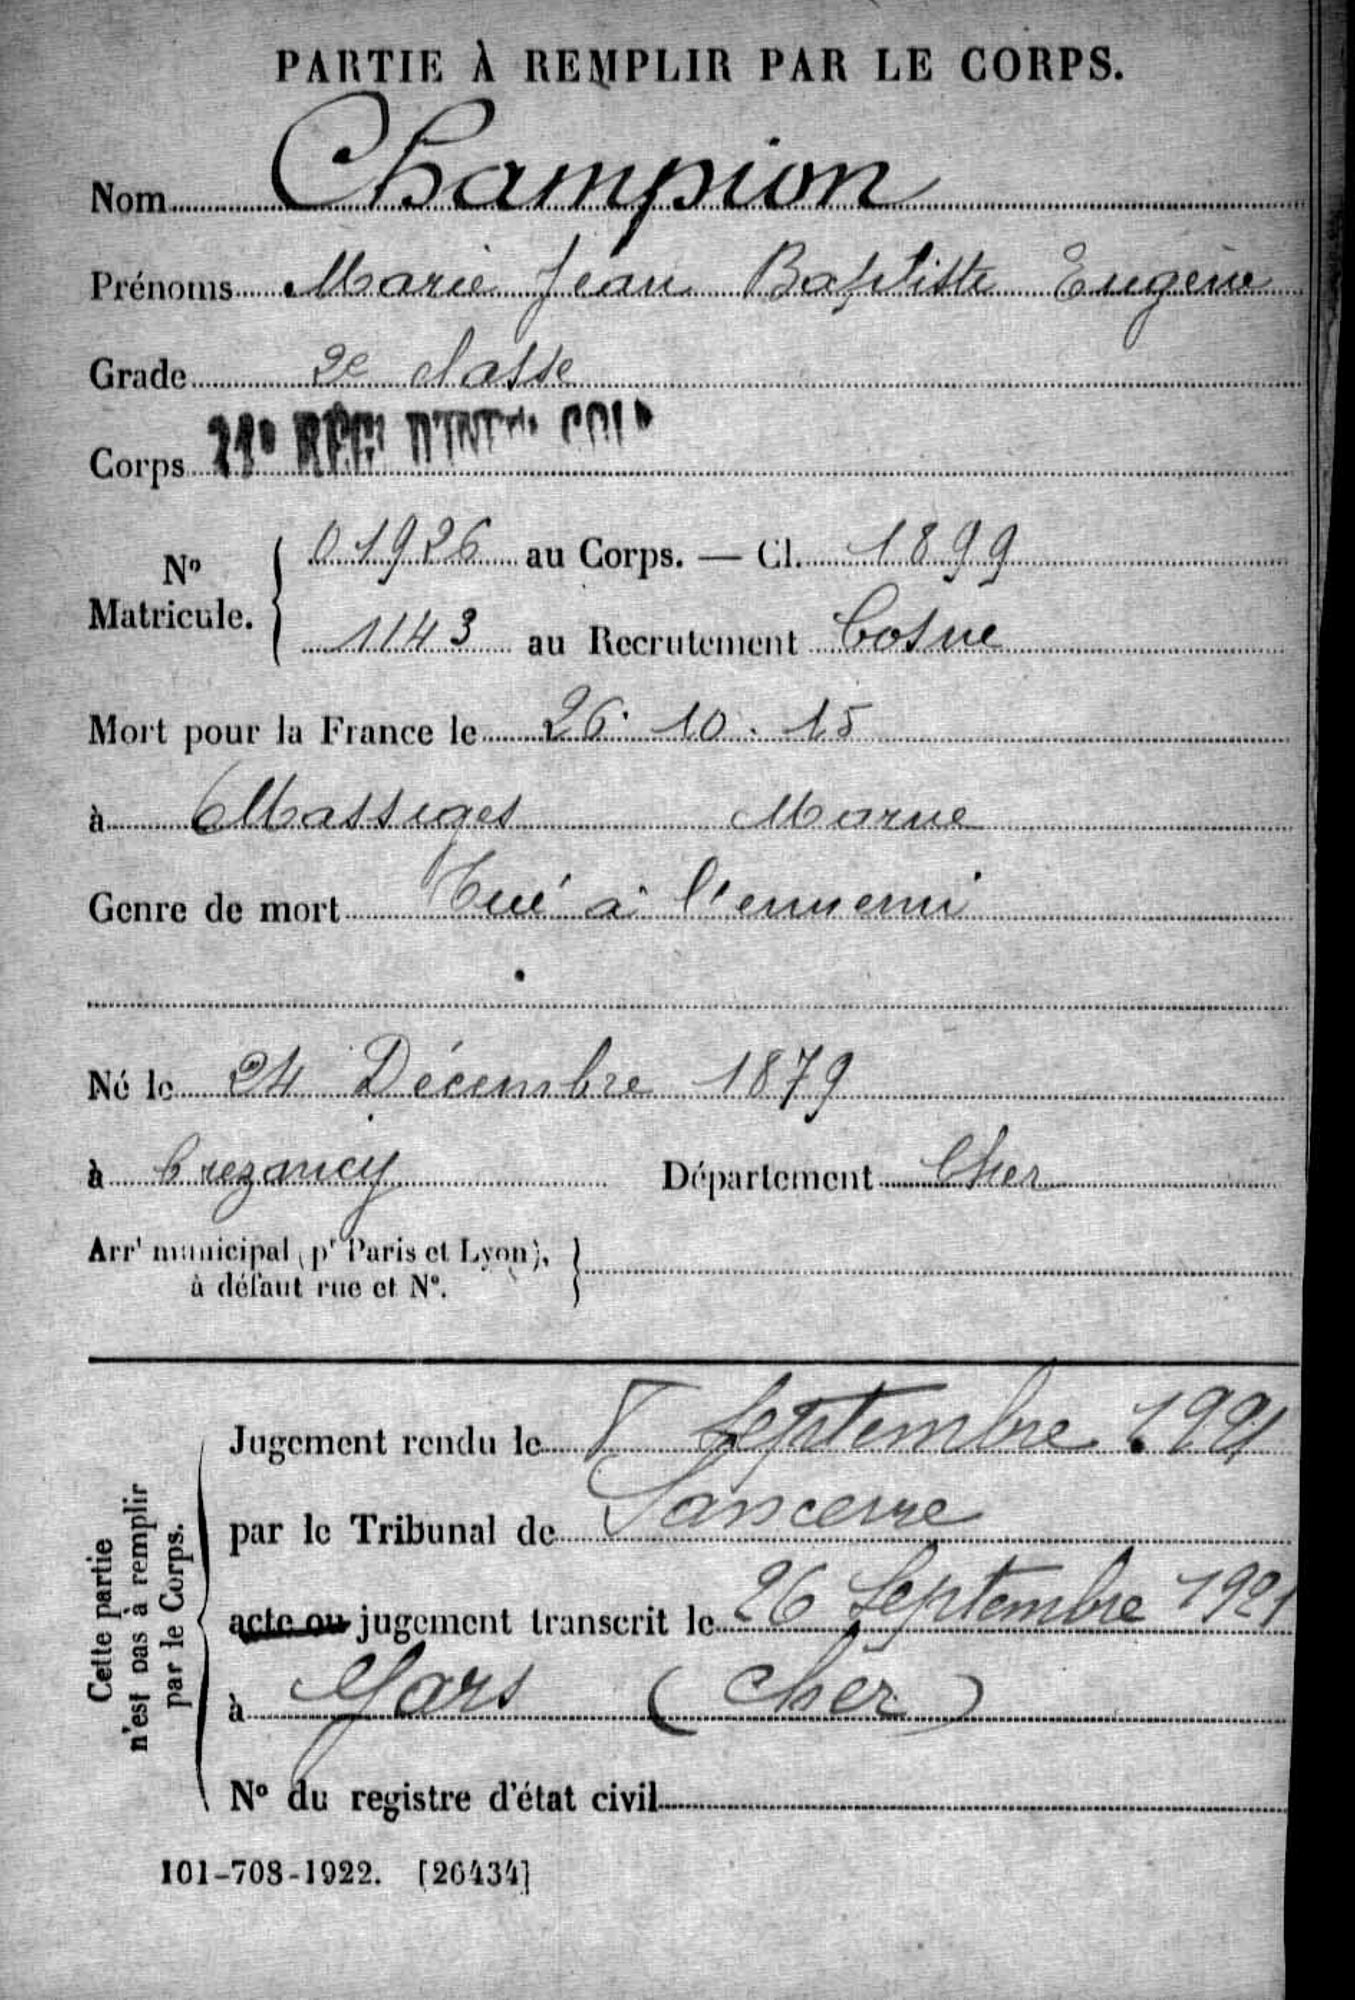 PARTIE À REMPLIR PAR LE CORPS.
Nom Champion
Prénoms Marie Jean Baptiste Eugène
Grade 2e classe
Corps 21e RÉGt D'INFie COL
No Matricule. 01926 au Corps. — Cl. 1899
1143 au Recrutement Cosne
Mort pour la France le 26.10.15
à Massiges Marne
Genre de mort Tué à l'ennemi
Né le 24 Décembre 1879
à Crezancy Département Cher
Arrt municipal (pr Paris et Lyon),
à défaut rue et No.
Cette partie
n'est pas à remplir
par le Corps.
Jugement rendu le Septembre 1921
par le Tribunal de Sancerre
acte ou jugement transcrit le 26 Septembre 1921
à Jars (Cher)
No du registre d'état civil
101-708-1922. [26434]